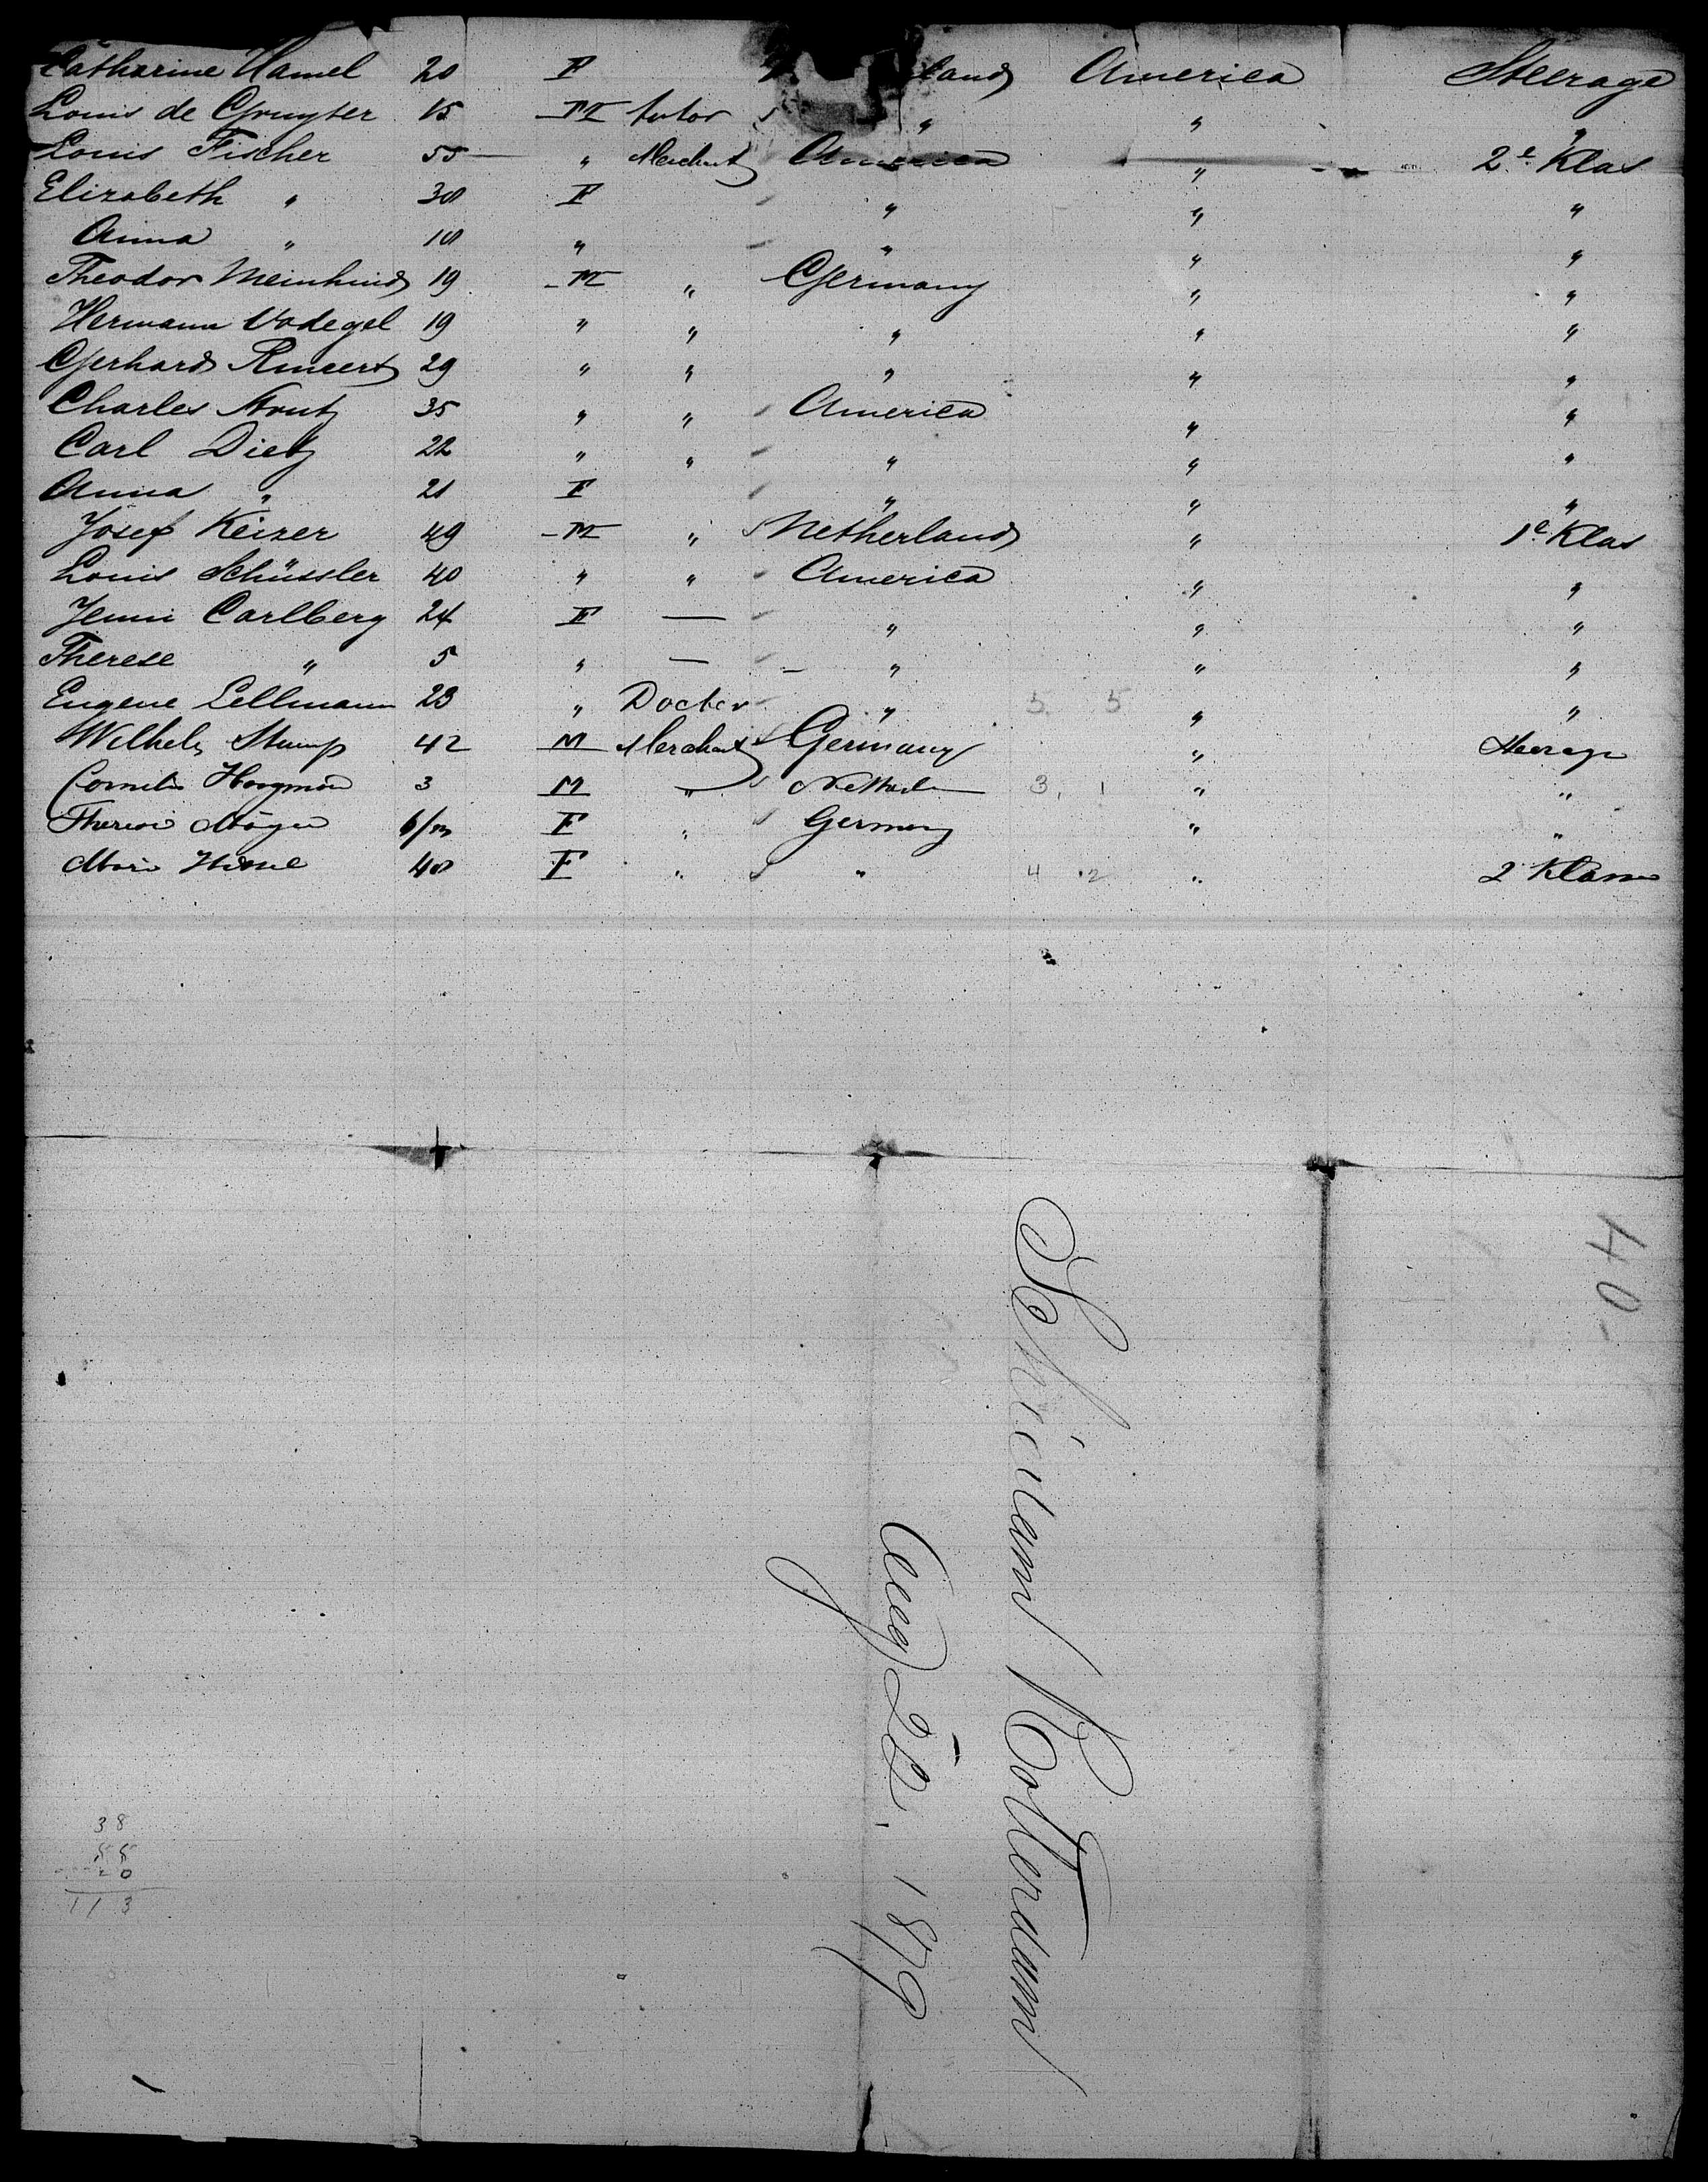 Catharine Hamel 20 F land America Steerage
Louis de Gruyter 15 M tutor " " "
Louis Fischer 55 " Merchant America " 2e Klas
Elizabeth " 30 F " " "
Anna " 10 " " " "
Theodor Meinhind 19 M " Germany " "
Hermann Vodegel 19 " " " " "
Gerhard 29 " " " " "
Charles Strutz 35 " " America " "
Carl Dietz 22 " " " " "
Anna " 21 F " " "
Josef Keizer 49 M " Netherland " 1e Klas
Louis Schüssler 40 " " America " "
Jenni Carlberg 24 F — " " "
Therese " 5 " — " " "
Eugene Lellmann 23 " Doctor " 5 5 " "
Wilhelm Stump 42 M Merchant Germany " Steerage
Cornelis 3 M " 3 1 " "
6/m F " Germany " "
40 F " " 4 2 " 2 Klasse
40-
Schiedam Rotterdam
Aug 28, 1879
38
55
20
113